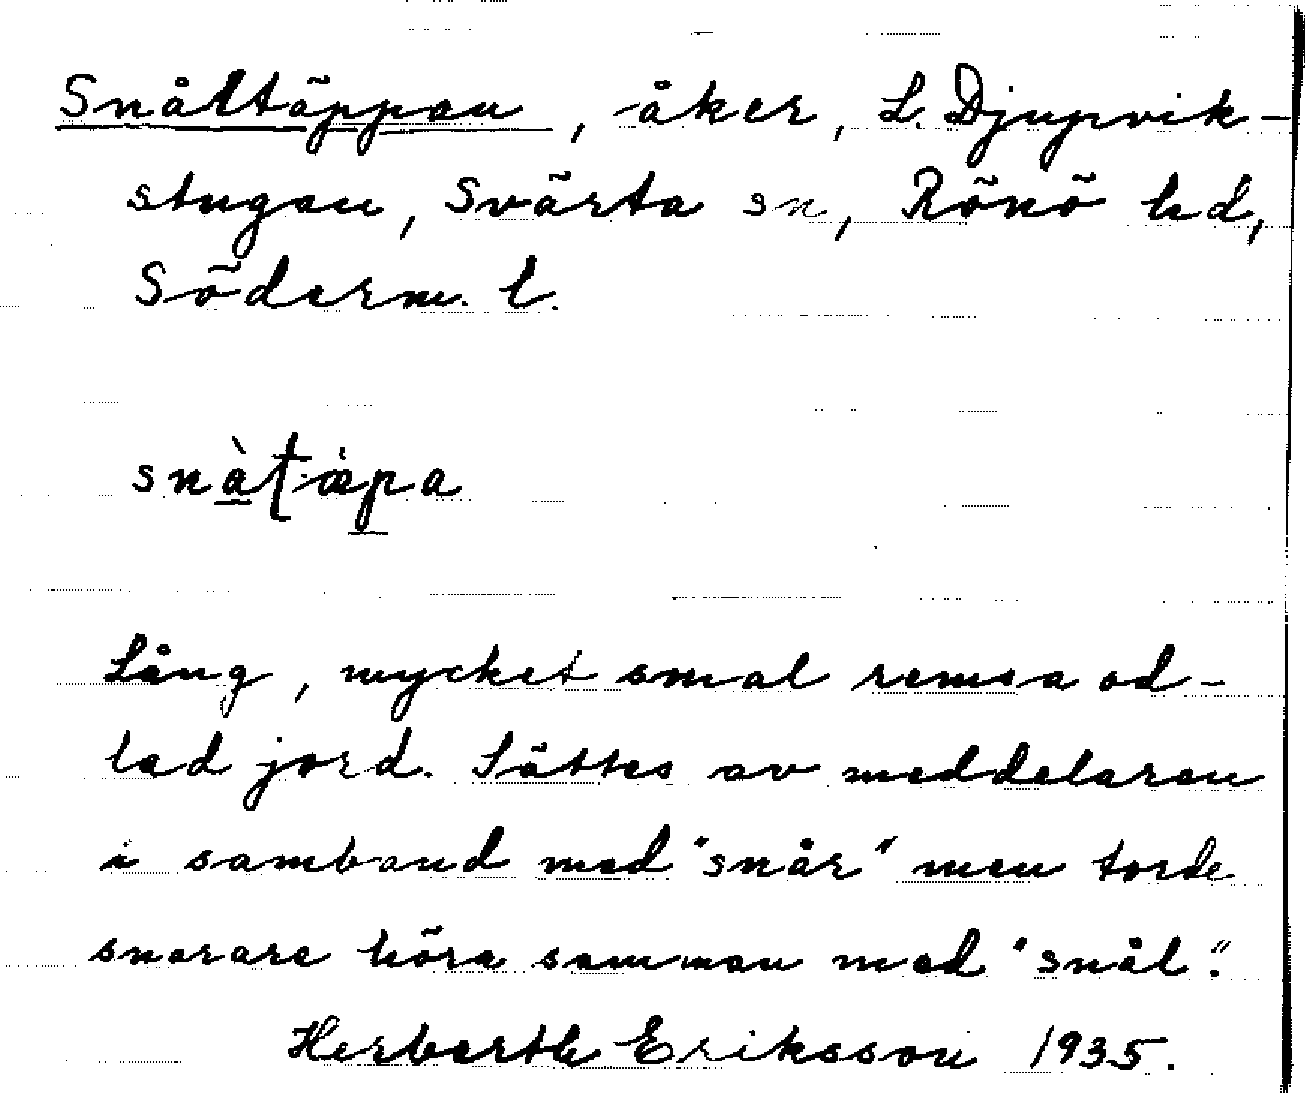 Snåltäppan, åker, L. Djupvik-
stugan, Svärta sn, Rönö hd,
Söderm. l.
snàtæ̀pa
Lång, mycket smal remsa od-
lad jord. Sättes av meddelaren
i samband med "snår" men torde
snarare höra samman med "snål".
Herberth Eriksson 1935.